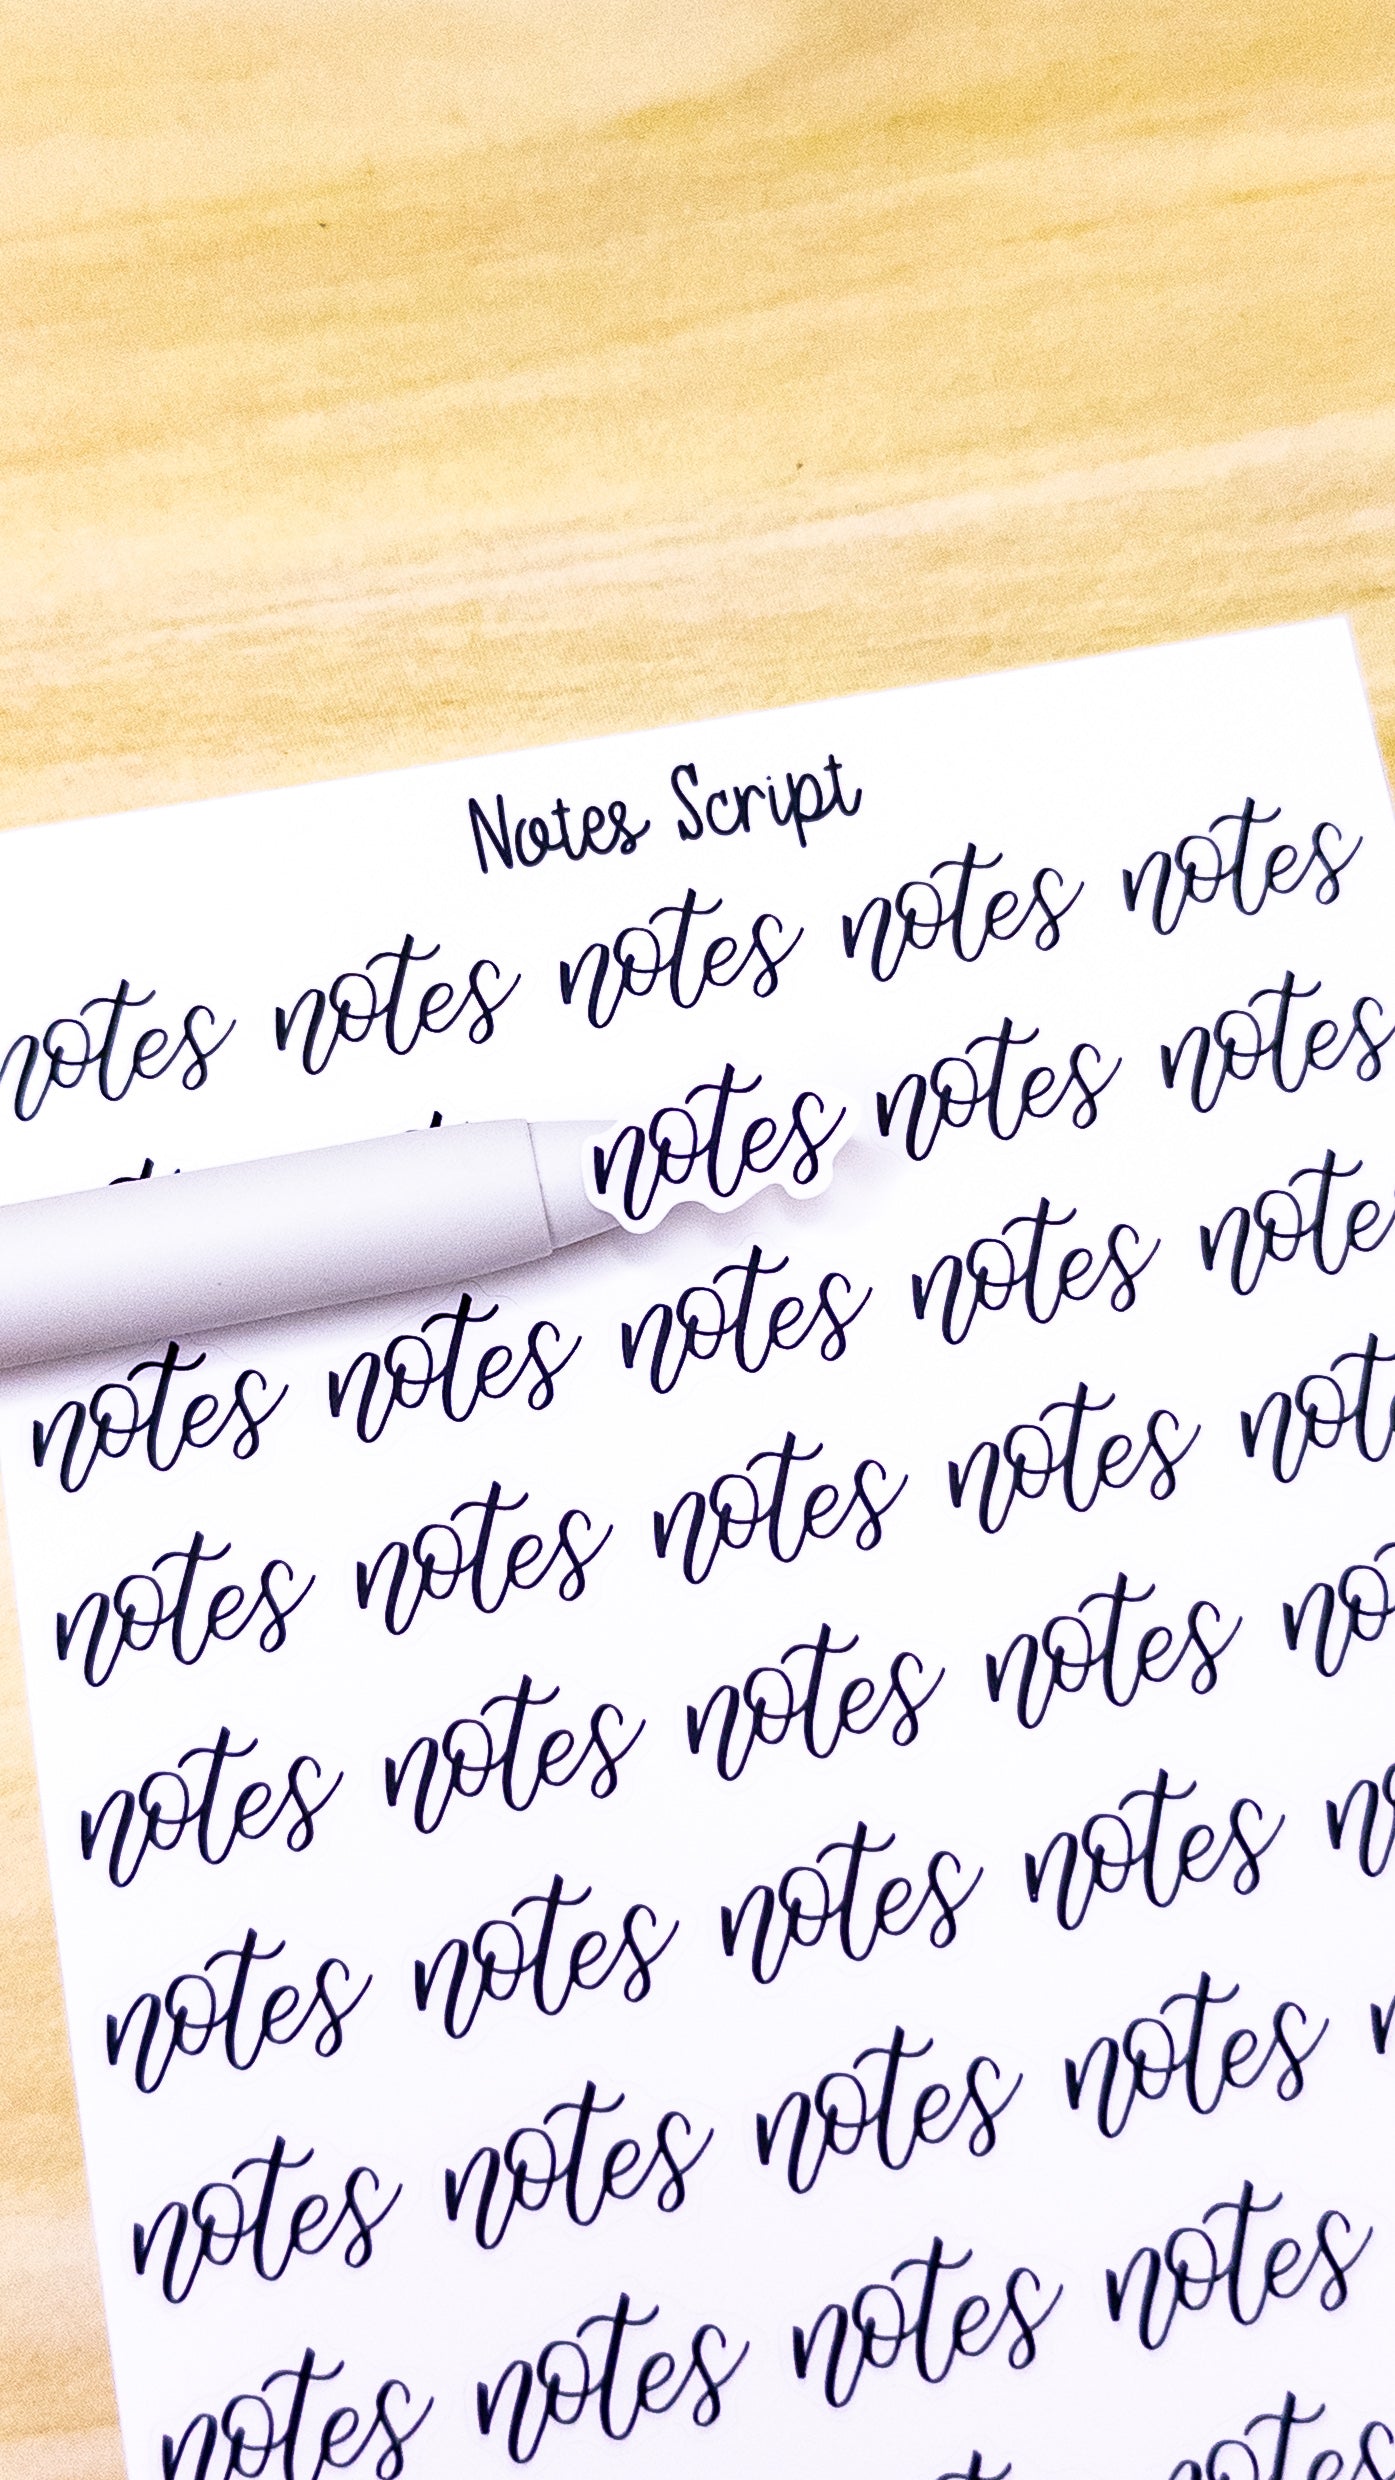 Notes Script
notes notes notes notes notes
notes notes notes
notes notes notes notes note
notes notes notes notes not
notes notes notes notes no
notes notes notes notes n
notes notes notes notes
notes notes notes notes